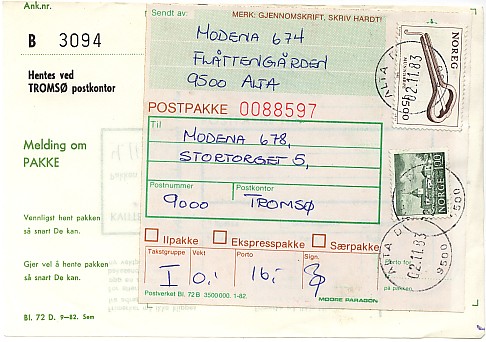 Ank.nr.
B 3094
Hentes ved
TROMSØ postkontor
Melding om
PAKKE
Vennligst hent pakken
så snart De kan.
Gjer vel å hente pakken
så snart De kan.
Bl. 72 D. 9–82. Sem
Sendt av:
MERK: GJENNOMSKRIFT, SKRIV HARDT!
MODENA 674
FLÅTTENGÅRDEN
9500 ALTA
POSTPAKKE 0088597
Til
MODENA 678,
STORTORGET 5,
Postnummer Postkontor
9000 TROMSØ
Ilpakke Ekspresspakke Særpakke
Takstgruppe Vekt Porto Sign.
I 0,- 16,-
Postverket Bl. 72 B 3500000. 1-82.
MOORE PARAGON
Porto for
på pakken.
NOREG
0500
ALTA
02.11.83
NORGE 100
9500
ALTA
02.11.83
9500